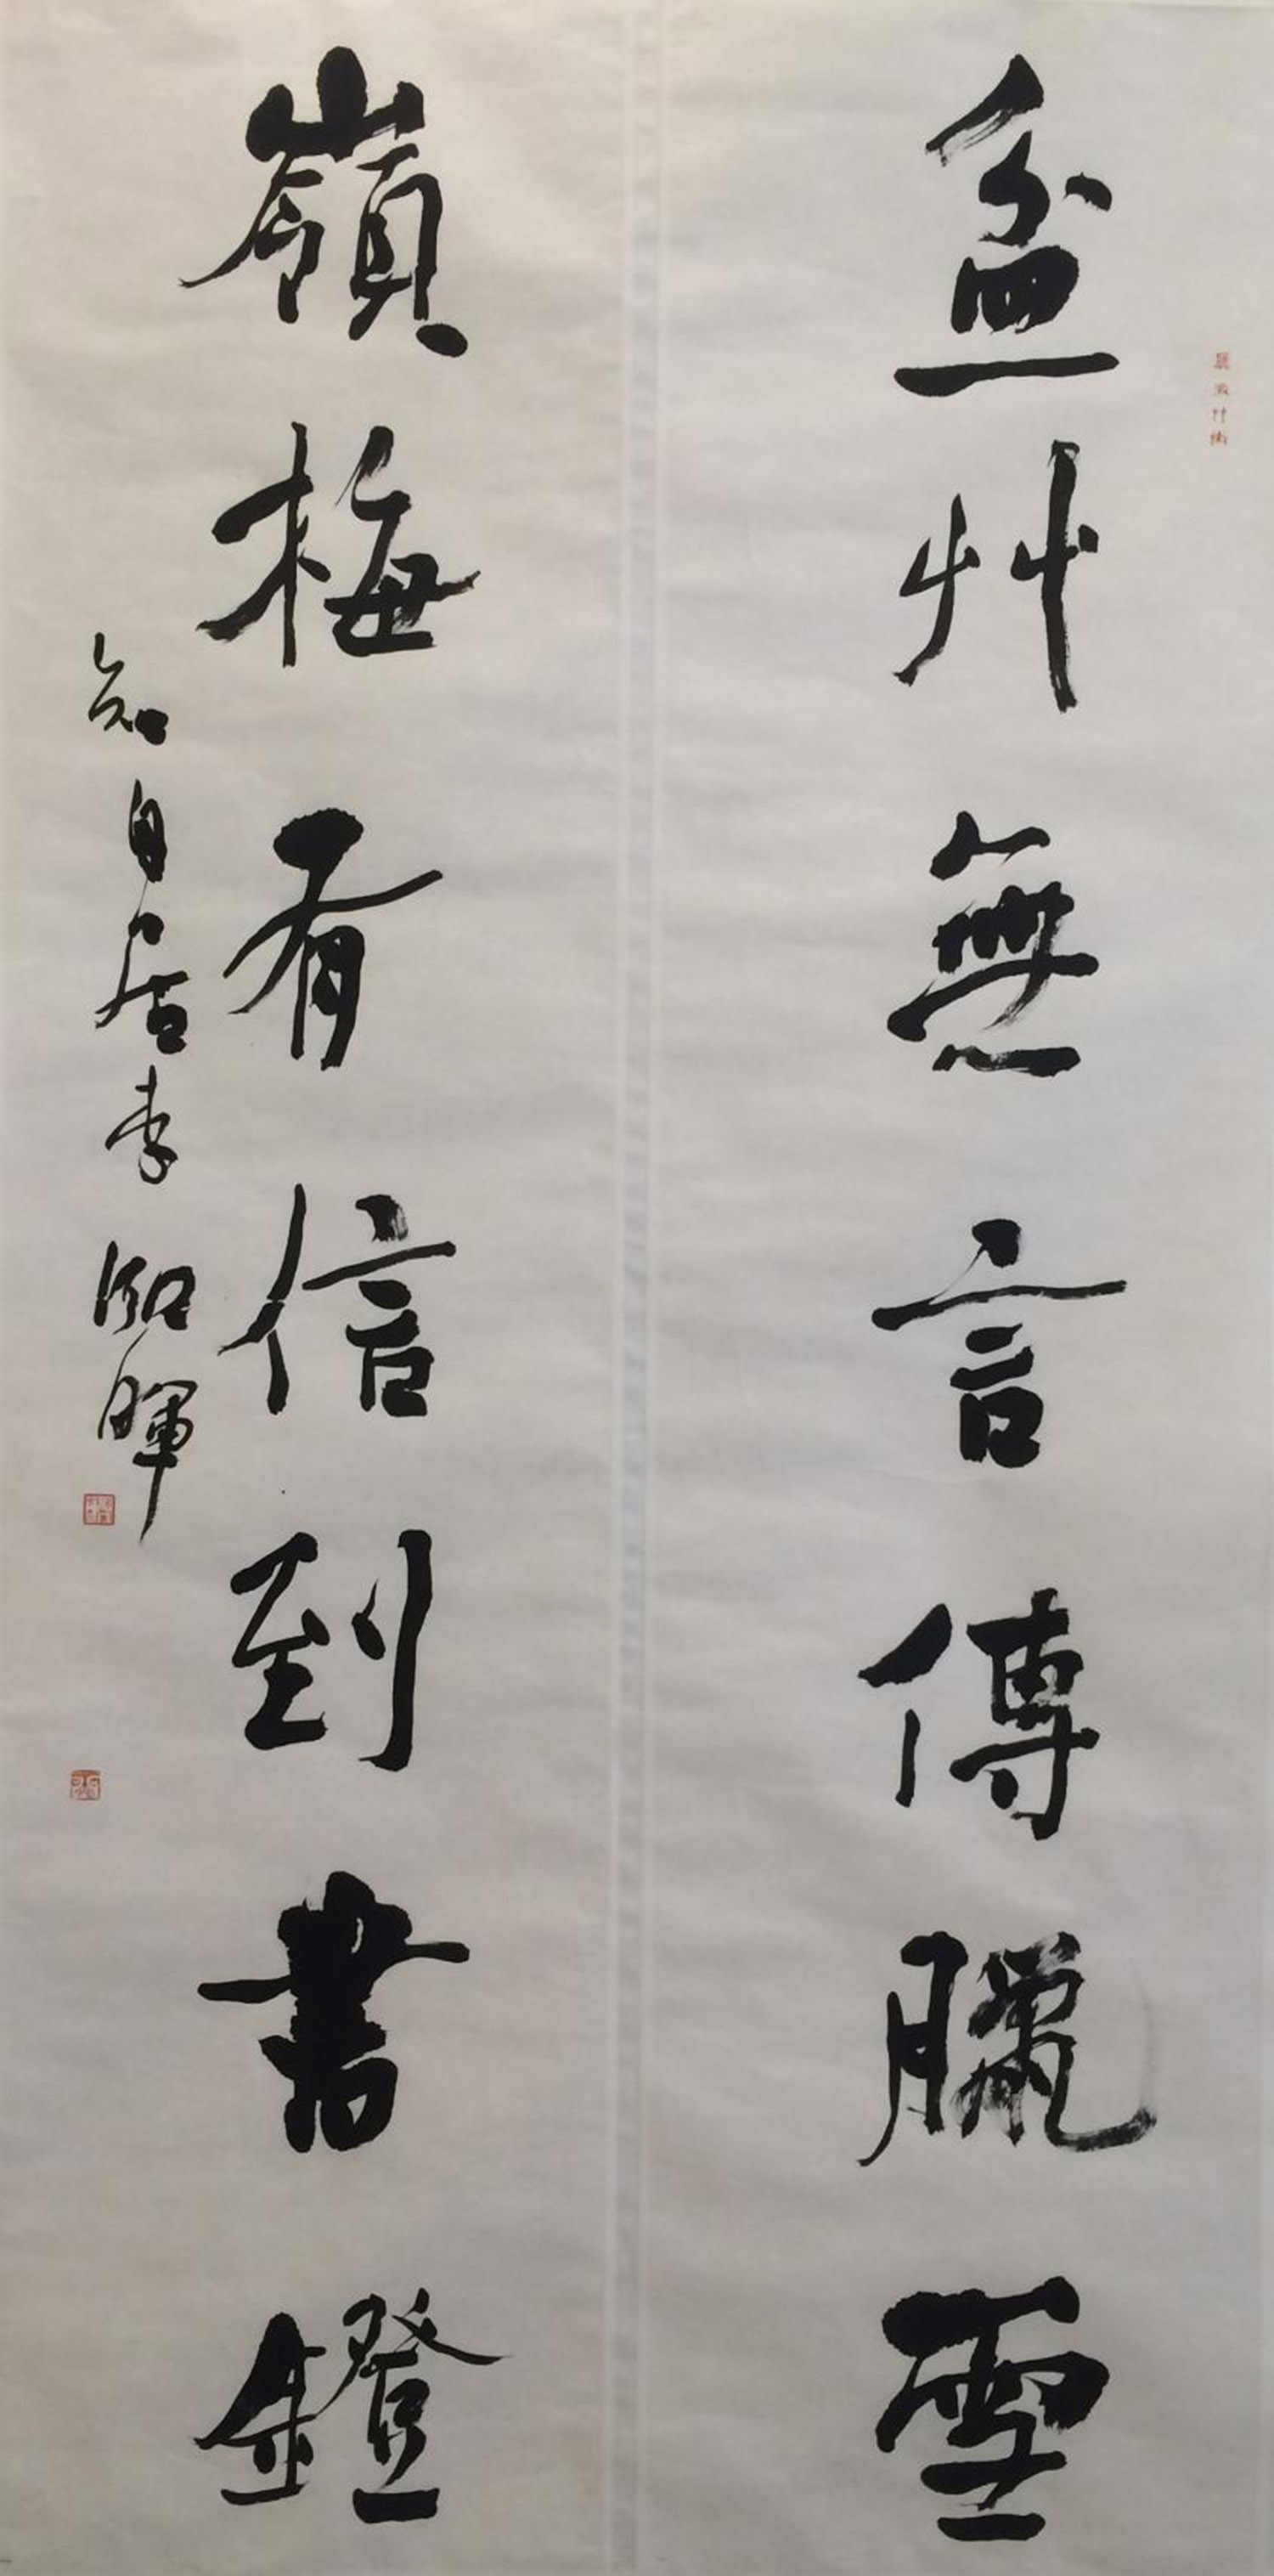 盆艸無言傳臘雪
嶺梅有信到書鐙
知白居李泓暉